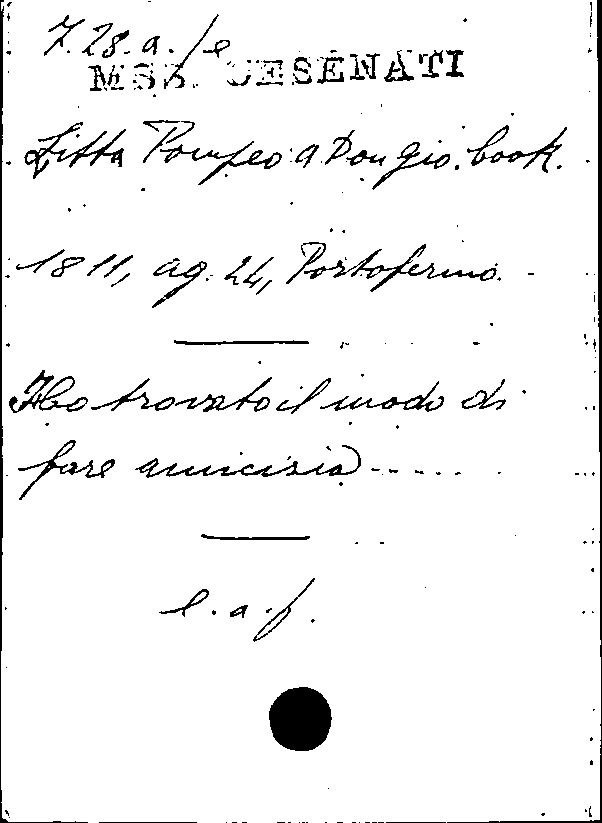 7.28.a./e
MSS. CESENATI
Litta Pompeo a Don Gio. book.
1811, ag. 24, Portoferino.
Ho trovato il modo di
fare amicizia ......
l. a. f.